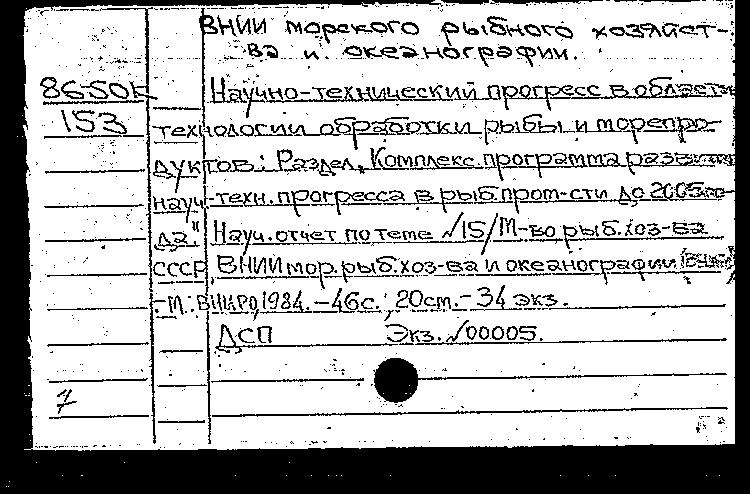 ВНИИ морского рыбного хозяйст-
ва и океанографии.
86-50к Научно-технический прогресс в области
153 технологии обработки рыбы и морепро-
дуктов: Раздел „Комплекс. программа развития
науч.-техн. прогресса в рыб. пром-сти до 2005 го-
да". Науч. отчет по теме №15/М-во рыб. хоз-ва
СССР, ВНИИ мор. рыб. хоз-ва и океанографии
.-М.: ВНИРО, 1984. - 46с.; 20см. - 34 экз.
ДСП Экз. №00005.
7